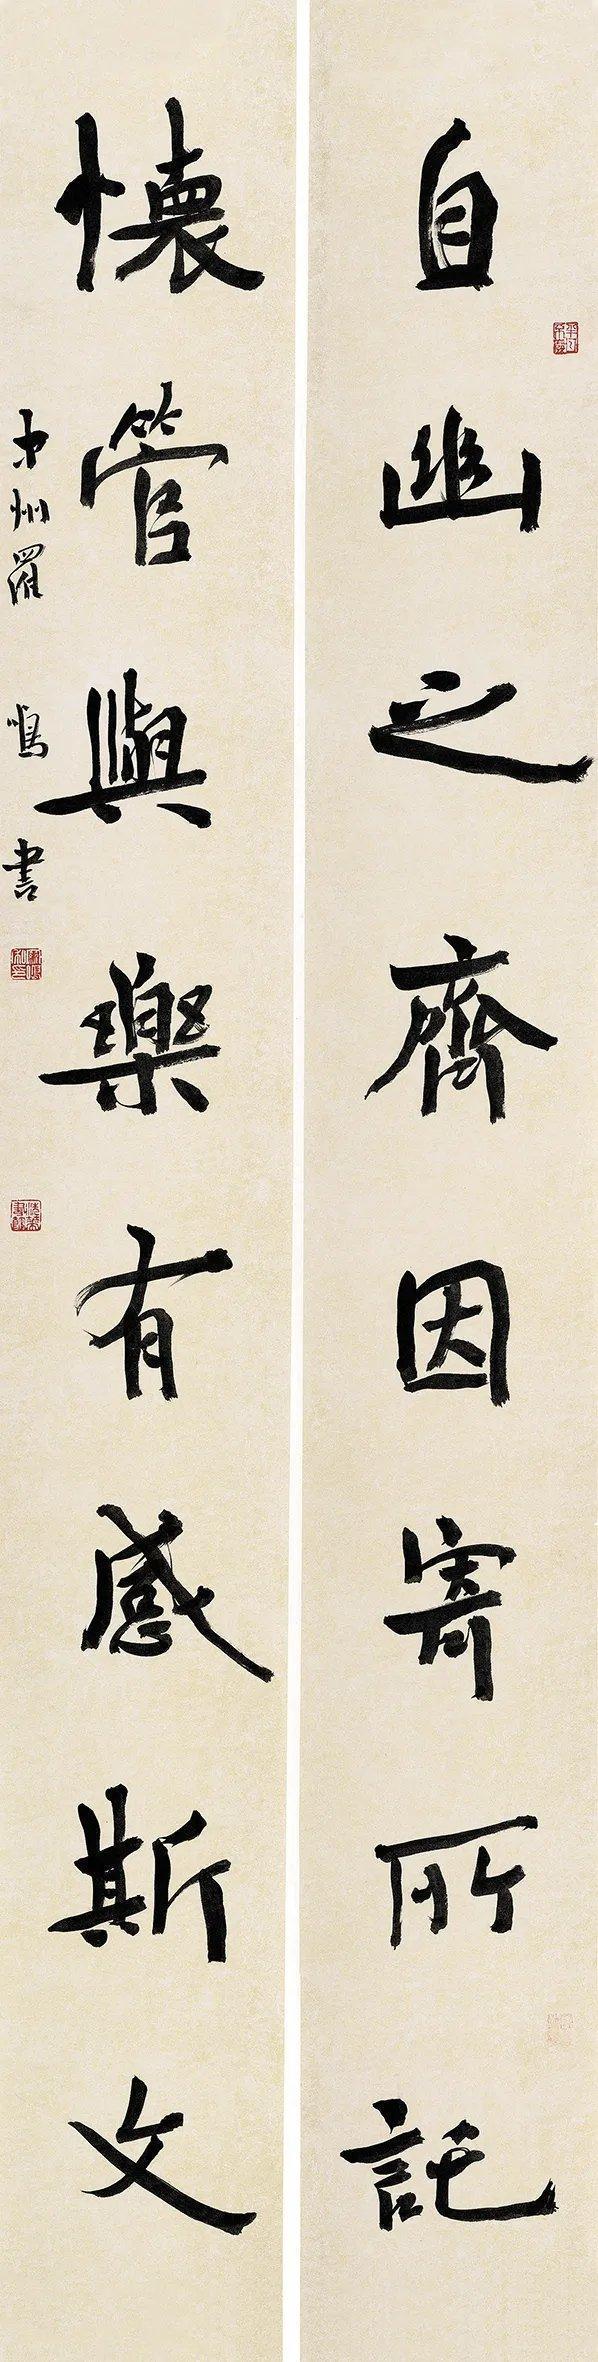 自幽之齊因寄所託
懷管與樂有感斯文
中州羅鳴書